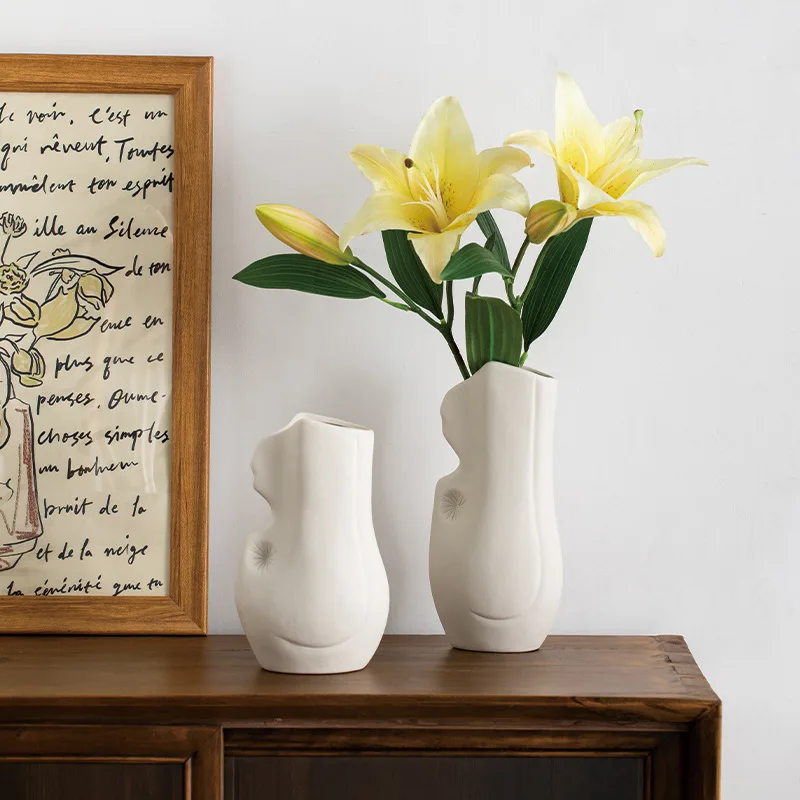 de voir, c'est un
qui rêvent, Toutes
ton esprit
ille au Silence
de ton
ence en
plus que ce
penses. Oume-
choses simples
un bonheur
bruit de la
et de la neige
la sérénité que tu